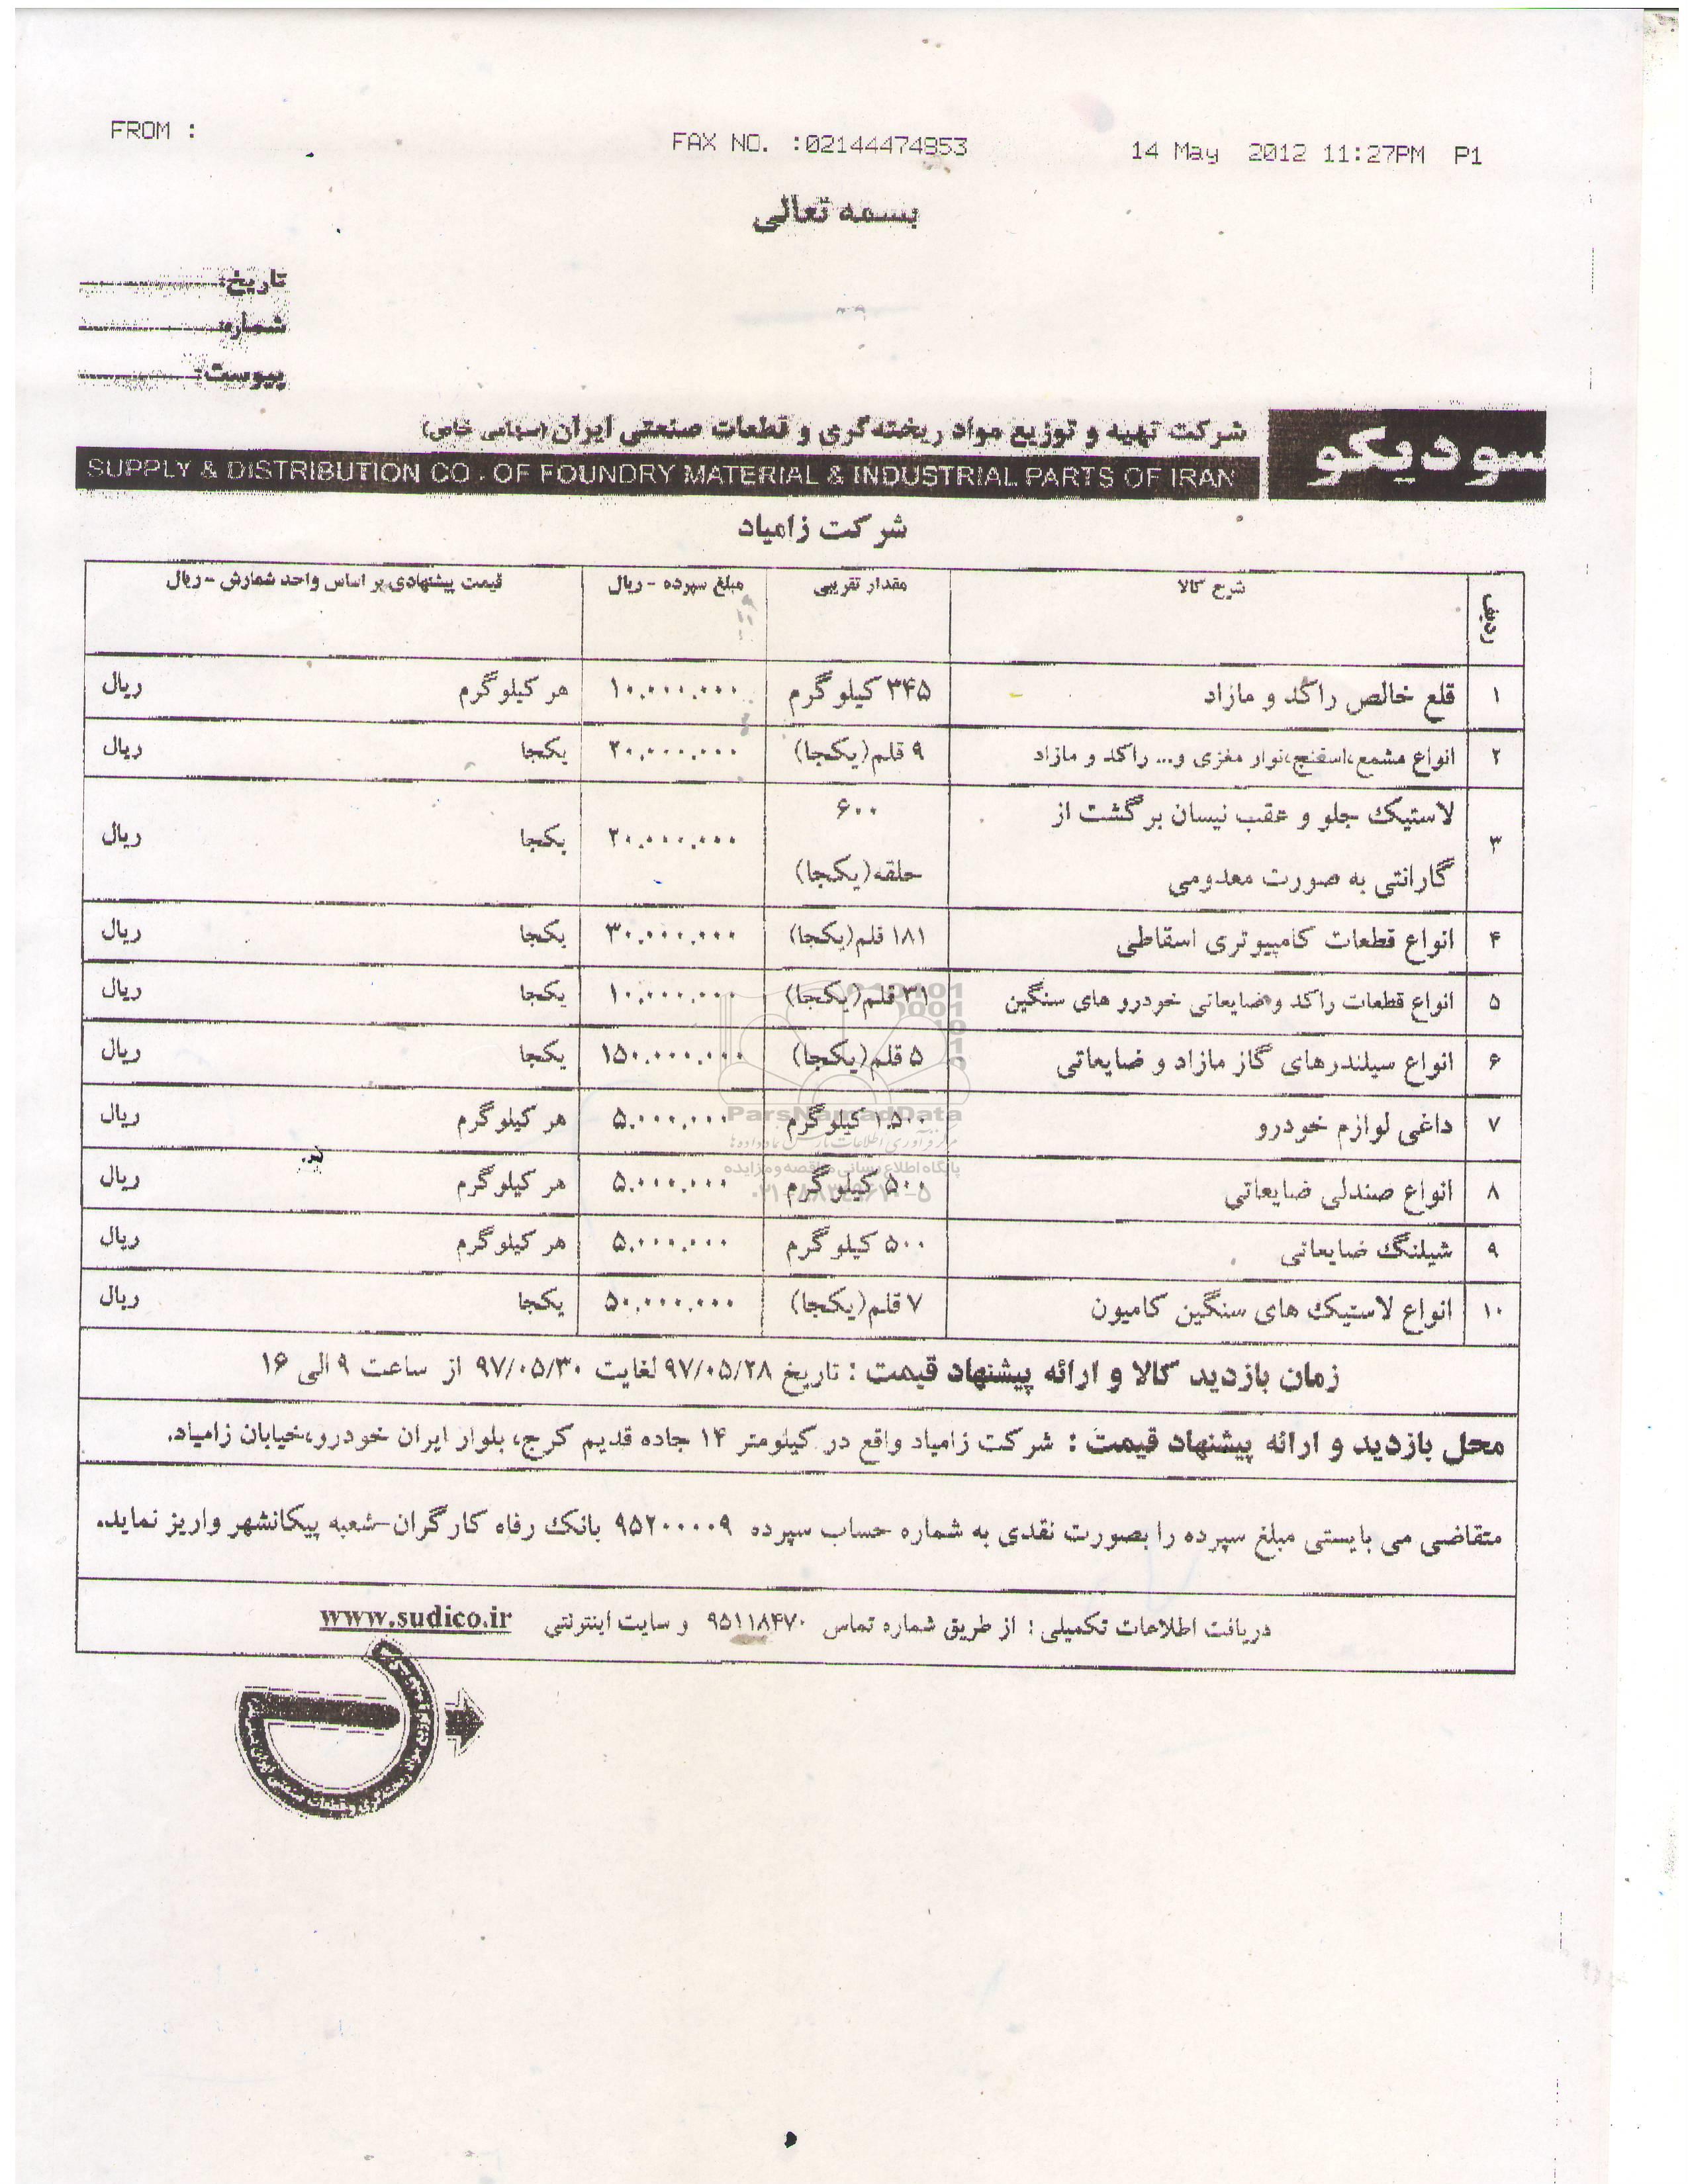 FROM :
FAX NO. :02144474853
14 May 2012 11:27PM P1
بسمه تعالی
تاریخ:
شماره:
پیوست:
سودیکو
شرکت تهیه و توزیع مواد ریخته‌گری و قطعات صنعتی ایران (سهامی خاص)
SUPPLY & DISTRIBUTION CO. OF FOUNDRY MATERIAL & INDUSTRIAL PARTS OF IRAN
شرکت زامیاد
ردیف شرح کالا مقدار تقریبی مبلغ سپرده - ریال قیمت پیشنهادی بر اساس واحد شمارش - ریال
۱ قلع خالص راکد و مازاد ۳۴۵ کیلوگرم ۱۰.۰۰۰.۰۰۰ هر کیلوگرم ریال
۲ انواع مشمع،اسفنج،نوار مغزی و... راکد و مازاد ۹ قلم(یکجا) ۲۰.۰۰۰.۰۰۰ یکجا ریال
۳ لاستیک جلو و عقب نیسان برگشت از ۶۰۰ ۲۰.۰۰۰.۰۰۰ یکجا ریال
گارانتی به صورت معدومی حلقه(یکجا)
۴ انواع قطعات کامپیوتری اسقاطی ۱۸۱ قلم(یکجا) ۳۰.۰۰۰.۰۰۰ یکجا ریال
۵ انواع قطعات راکد و ضایعاتی خودرو های سنگین ۳۱ قلم(یکجا) ۱۰.۰۰۰.۰۰۰ یکجا ریال
۶ انواع سیلندرهای گاز مازاد و ضایعاتی ۵ قلم(یکجا) ۱۵۰.۰۰۰.۰۰۰ یکجا ریال
۷ داغی لوازم خودرو ۱.۵۰۰ کیلوگرم ۵.۰۰۰.۰۰۰ هر کیلوگرم ریال
۸ انواع صندلی ضایعاتی ۵۰۰ کیلوگرم ۵.۰۰۰.۰۰۰ هر کیلوگرم ریال
۹ شیلنگ ضایعاتی ۵۰۰ کیلوگرم ۵.۰۰۰.۰۰۰ هر کیلوگرم ریال
۱۰ انواع لاستیک های سنگین کامیون ۷ قلم(یکجا) ۵۰.۰۰۰.۰۰۰ یکجا ریال
ParsNamadData
پایگاه اطلاع رسانی مناقصه و مزایده
زمان بازدید کالا و ارائه پیشنهاد قیمت : تاریخ ۹۷/۰۵/۲۸ لغایت ۹۷/۰۵/۳۰ از ساعت ۹ الی ۱۶
محل بازدید و ارائه پیشنهاد قیمت : شرکت زامیاد واقع در کیلومتر ۱۴ جاده قدیم کرج، بلوار ایران خودرو،خیابان زامیاد.
متقاضی می بایستی مبلغ سپرده را بصورت نقدی به شماره حساب سپرده ۹۵۲۰۰۰۰۹ بانک رفاه کارگران-شعبه پیکانشهر واریز نماید.
دریافت اطلاعات تکمیلی : از طریق شماره تماس ۹۵۱۱۸۴۷۰ و سایت اینترنتی www.sudico.ir